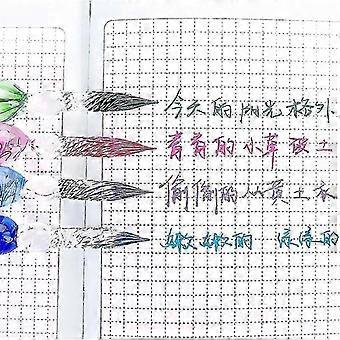 今天的阳光格外
青青的小草破土
偷偷的从黄土衣
嫩嫩的 绿绿的